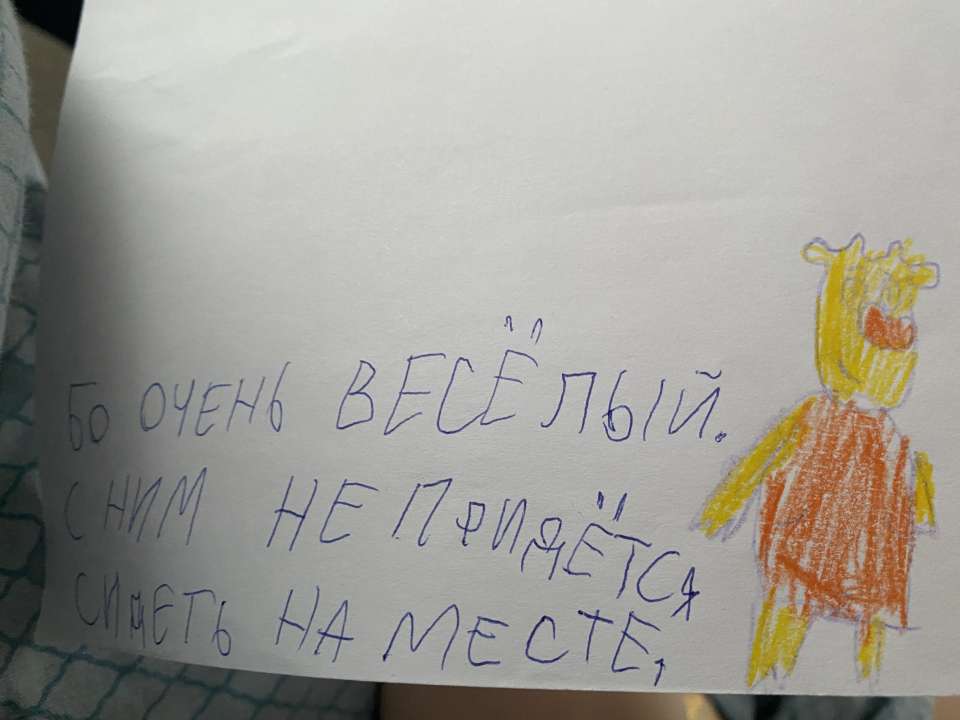 БО ОЧЕНЬ ВЕСЁЛЫЙ.
С НИМ НЕ ПРИДЁТСЯ
СИДЕТЬ НА МЕСТЕ,